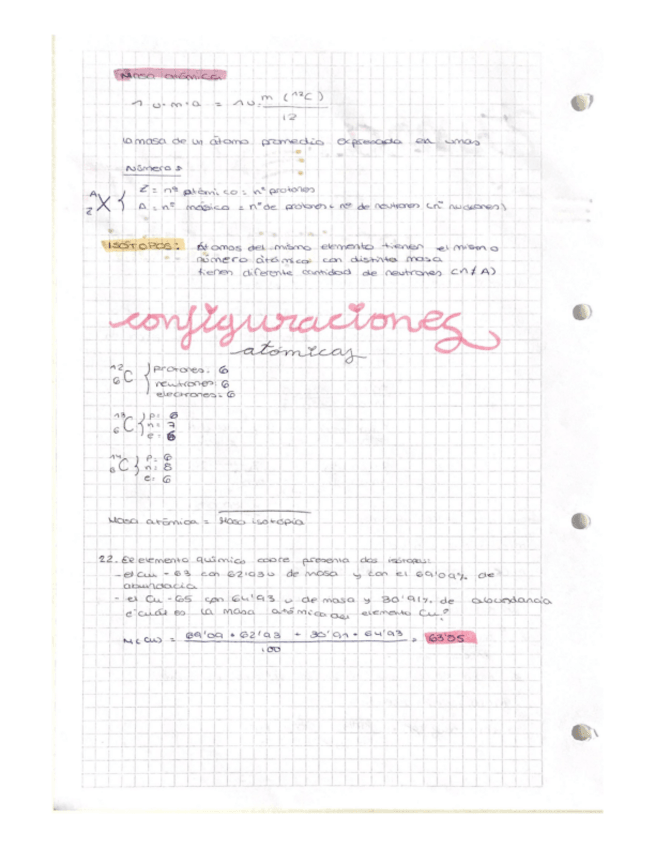 Masa atómica
1 u.m.a = 1u: m (¹²C)
12
la masa de un átomo promedio expresada en umas
Números
A Z X { Z = nº atómico = nº protones
A = nº másico = nº de protones + nº de neutrones (nº nucleones)
ISÓTOPOS: Átomos del mismo elemento tienen el mismo
número atómico con distinta masa
tienen diferente cantidad de neutrones (n ≠ A)
configuraciones
atómicas
¹²₆C { protones: 6
neutrones: 6
electrones: 6
¹³₆C { p: 6
n: 7
e: 6
¹⁴₆C { p: 6
n: 8
e: 6
Masa atómica = Masa isotópica
22. El elemento químico cobre presenta dos isótopos:
- el Cu - 63 con 62'93u de masa y con el 69'09% de
abundancia
- el Cu - 65 con 64'93 u de masa y 30'91% de abundancia
¿cuál es la masa atómica del elemento Cu?
M(Cu) = 69'09 · 62'93 + 30'91 · 64'93 = 63'55
100